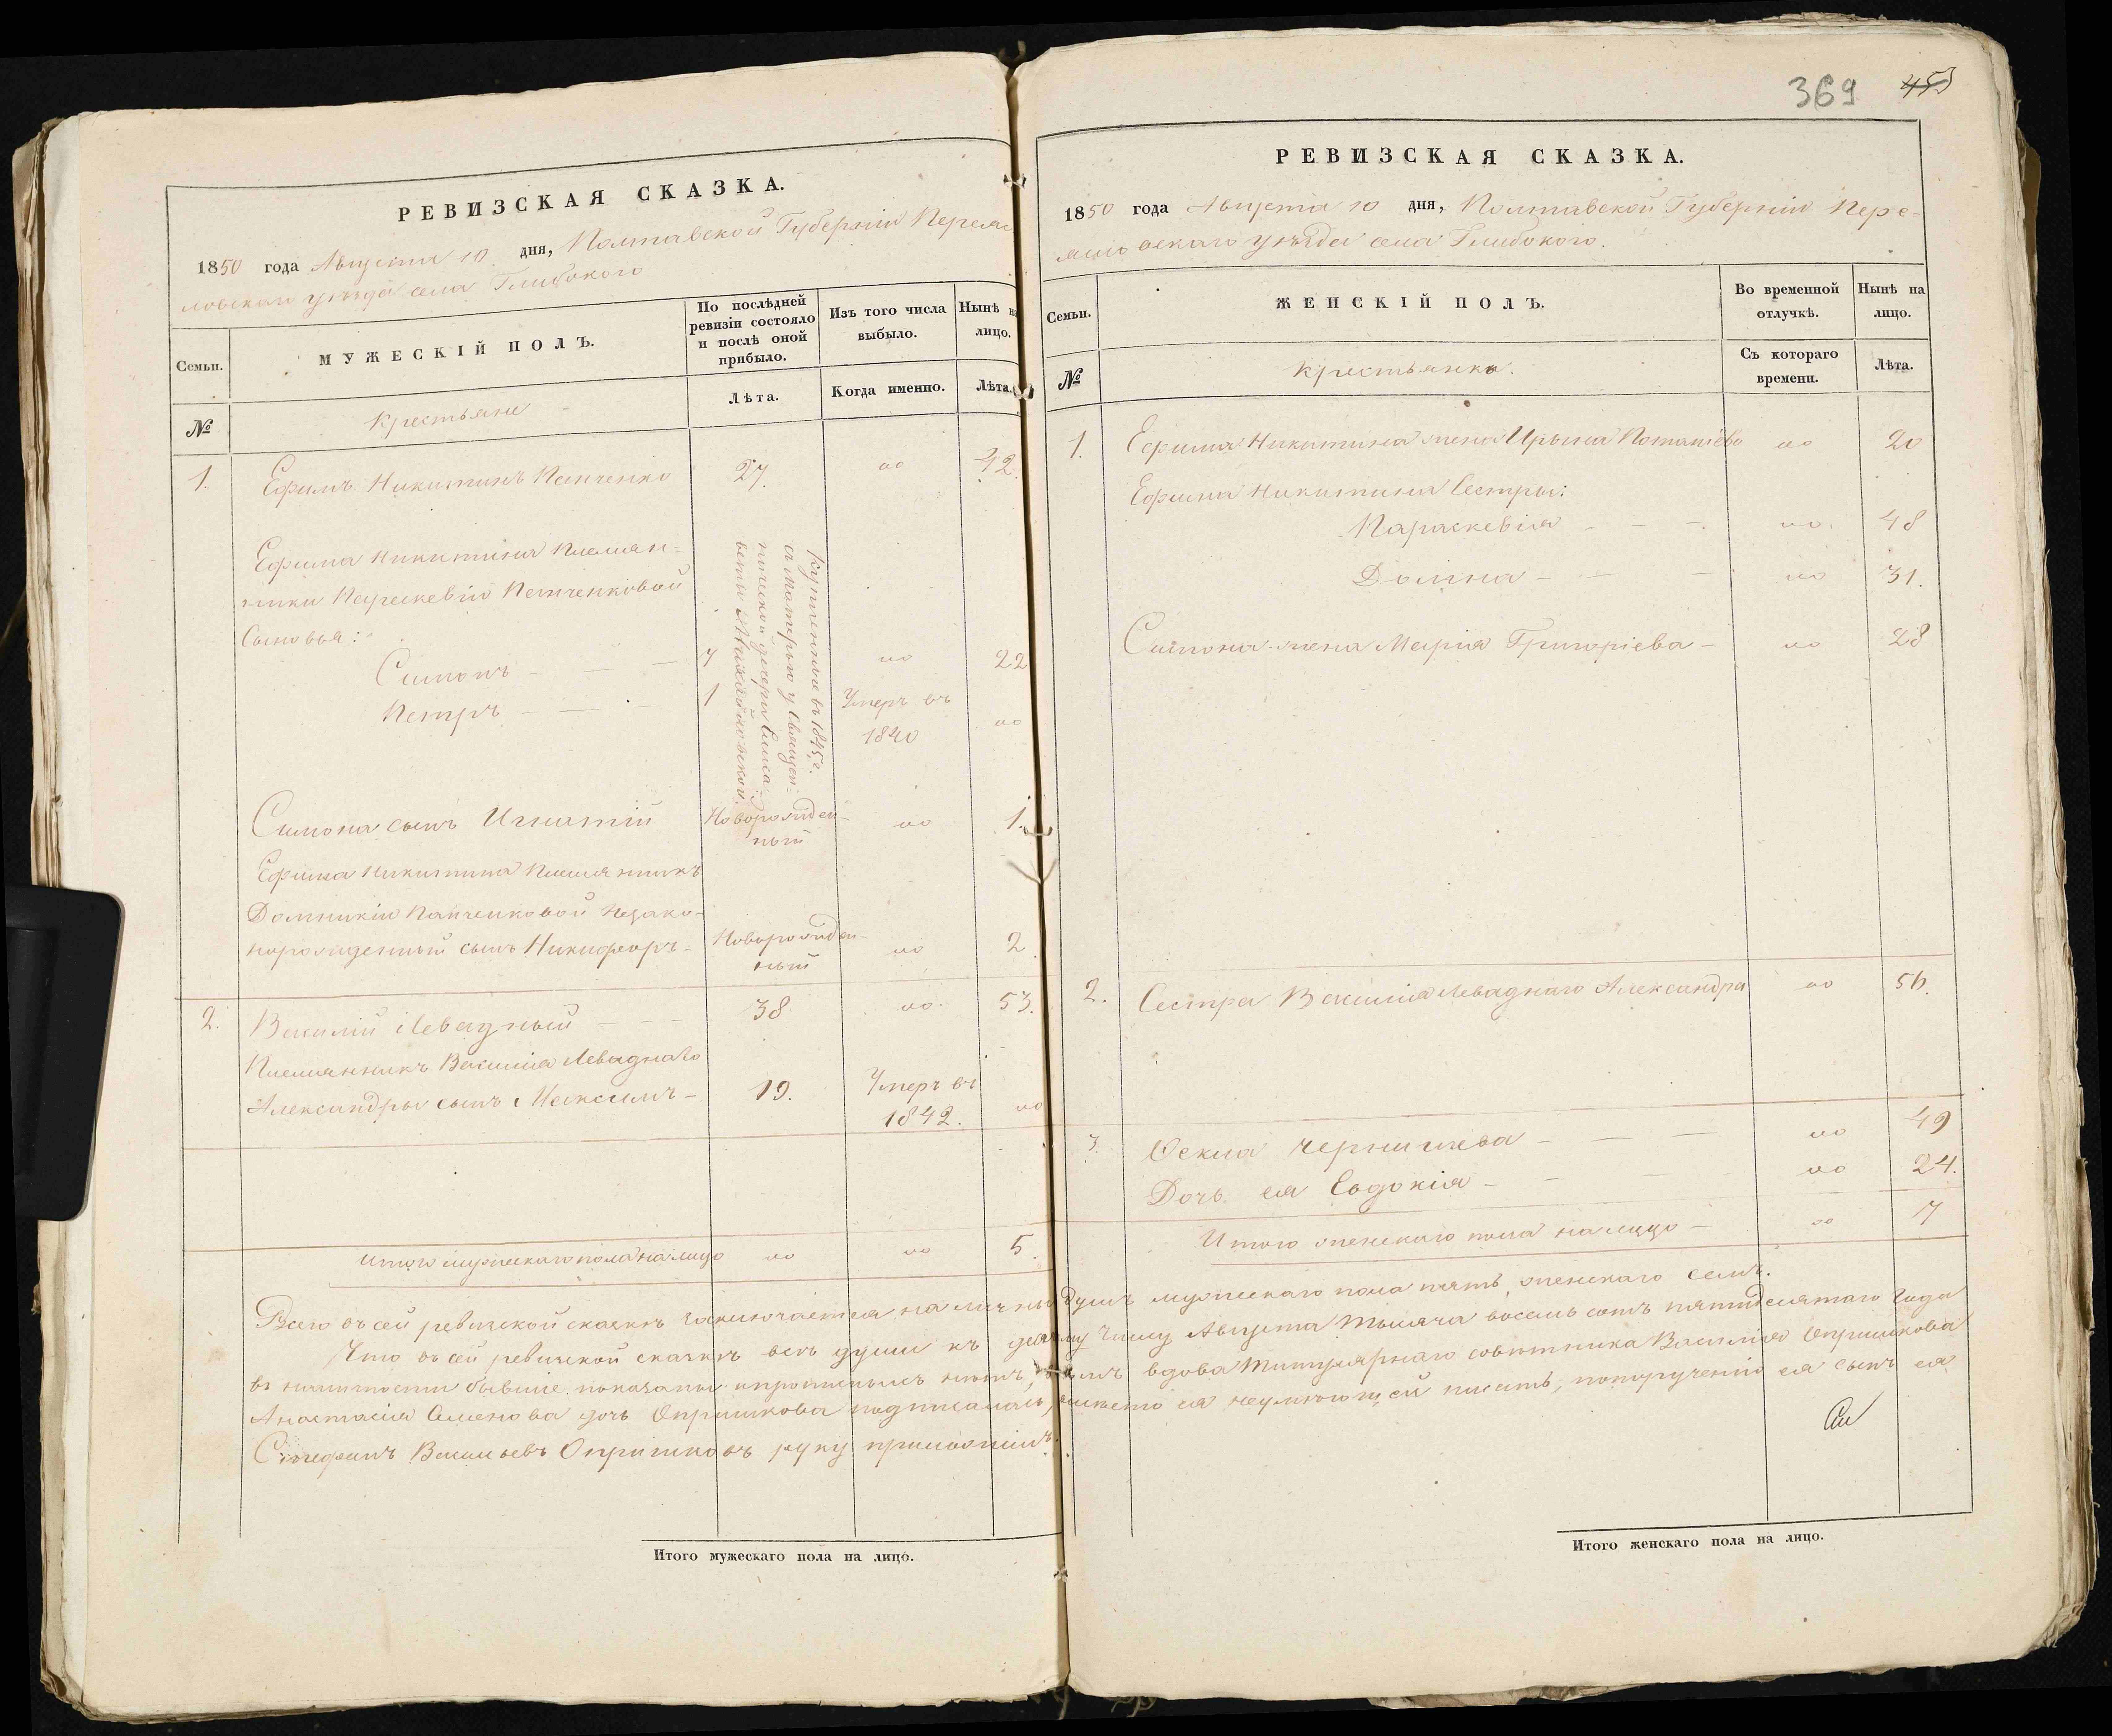 РЕВИЗСКАЯ СКАЗКА.
1850 года Августа 10 дня, Полтавской Губерніи Переяс
ловскаго уѣзда села Глибокого
Семьи.
МУЖЕСКІЙ ПОЛЪ.
По послѣдней
ревизіи состояло
и послѣ оной
прибыло.
Изъ того числа
выбыло.
Нынѣ на
лицо.
№
Крестьяне
Лѣта.
Когда именно.
Лѣта.
1. Ефимъ Никитинъ Панченко 27. „ 42.
Ефима Никитина Племян=
ники Параскевіи Панченковой
Сыновья:
Симонъ — — — 7 „ 22
Петръ — — — 1 Умеръ въ „
1840
Купленные въ 1845 г.
съ Матерью у Священ=
нической дочери
Симона сынъ Игнатій Новорожден= „ 1.
ный
Ефима Никитина Племянникъ
Домникіи Панченковой Незако=
норожденный сынъ Никифоръ — Новорожден= „ 2.
ный
2. Василій Левадный — — — 38 „ 53.
Племянникъ Василія Леваднаго
Александры сынъ Максимъ — 19. Умеръ въ „
1842.
Итого мужескаго пола на лицо „ „ 5.
Итого мужескаго пола на лицо.
369 453
РЕВИЗСКАЯ СКАЗКА.
1850 года Августа 10 дня, Полтавской Губерніи Пере=
ясловскаго уѣзда села Глибокого.
Семьи.
ЖЕНСКІЙ ПОЛЪ.
Во временной
отлучкѣ.
Нынѣ на
лицо.
№
Крестьянки.
Съ котораго
времени.
Лѣта.
1. Ефима Никитина жена Ирына Потапіева „ 20
Ефима Никитина Сестры:
Параскевія — — — „ 48
Домна — — — „ 31.
Симона жена Марія Григоріева — „ 28
2. Сестра Василія Леваднаго Александра „ 56.
3. Фекла Чернишева — — — „ 49
Дочь ея Евдокія — — — „ 24.
Итого женскаго пола на лицо — „ 7
Всего въ сей ревизской сказкѣ заключается наличныхъ душъ мужескаго пола пять, женскаго семь.
Что въ сей ревизской сказкѣ всѣ души къ десятому числу Августа тысяча восемь сотъ пятидесятаго года
въ наличности бывшіе показаны и прописныхъ нѣтъ, въ томъ вдова Титулярнаго совѣтника Василія Опришкова
Анастасія Семенова дочь Опришкова подписалась, вмѣсто ея неумѣющей писать, по порученію ея сынъ ея
Стефанъ Васильевъ Опришковъ руку приложилъ.
Итого женскаго пола на лицо.